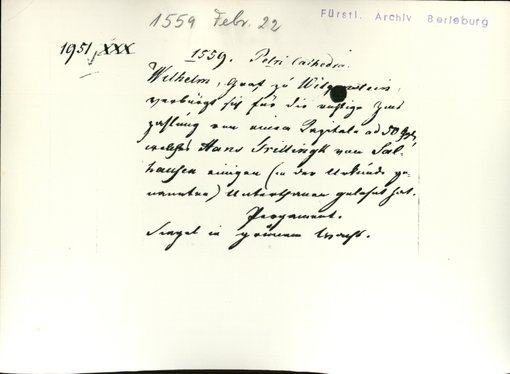 1559 Febr. 22
Fürstl. Archiv Berleburg
1951, XXX
1559. Petri Cathedra.
Wilhelm, Graf zu Witgenstein,
verbürgt sich für die richtige Zins
zahlung von einem Kapitale ad 50
welches Hans Grillingk von Sal-
hausen einigen (in der Urkunde ge-
nannten) Unterthanen geliehen hat.
Pergament.
Siegel in grünem Wachs.